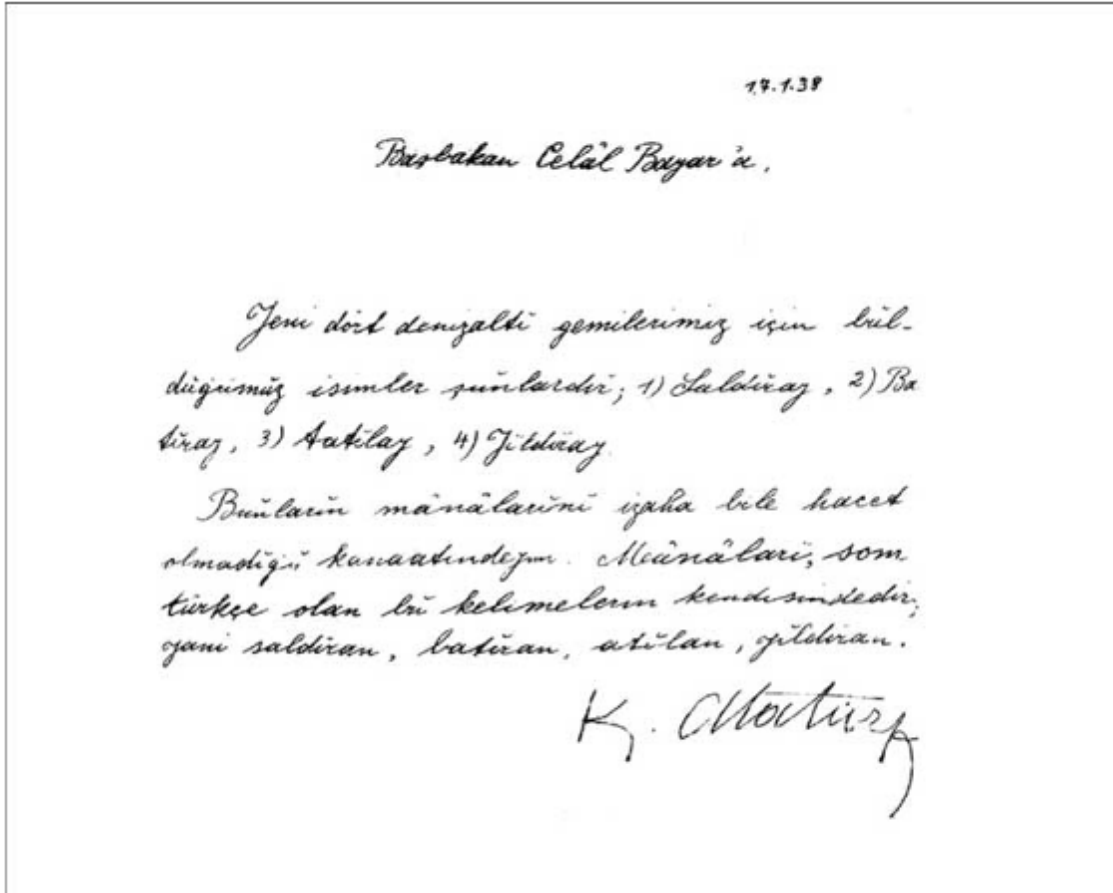 17.1.38
Başbakan Celâl Bayar'a,
Yeni dört denizaltı gemilerimiz için bul-
duğumuz isimler şunlardır; 1) Saldıray, 2) Ba
tıray, 3) Atılay, 4) Yıldıray
Bunların mânâlarını izaha bile hacet
olmadığı kanaatındeyim. Mânâları, som
türkçe olan bu kelimelerin kendisindedir;
yani saldıran, batıran, atılan, yıldıran.
K. Atatürk